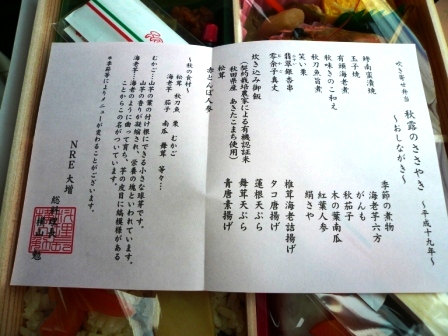 吹き寄せ弁当
秋露のささやき
～おしながき～
～平成十九年～
蜂南蛮漬焼
玉子焼
有頭海老煮
秋味きのこ和え
秋刀魚旨煮
笑い栗
翡翠銀杏串
零余子真丈
炊き込み御飯
(契約栽培農家による有機認証米
秋田県産 あきたこまち使用)
松茸
赤とんぼ人参
季節の煮物
海老芋六方
がんも
秋茄子
木の葉南瓜
紅葉人参
絹さや
椎茸海老詰揚げ
タコ唐揚げ
蓮根天ぷら
舞茸天ぷら
青唐素揚げ
～秋の食材～
松茸 秋刀魚 栗 むかご
海老芋 茄子 南瓜 舞茸 等々…
むかご…山芋の葉の付け根にできる小さな球芽です。
山芋の香りが凝縮され、栄養の塊といわれています。
海老芋…海老のように曲って育ち、芋の皮目に縞模様がある
ことからこの名がついています。
＊季節等によりメニューが変わることがございます。
NRE 大増
総料理長